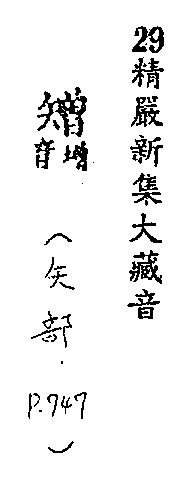 29精嚴新集大藏音
矰
音增
(矢部.
P.747)